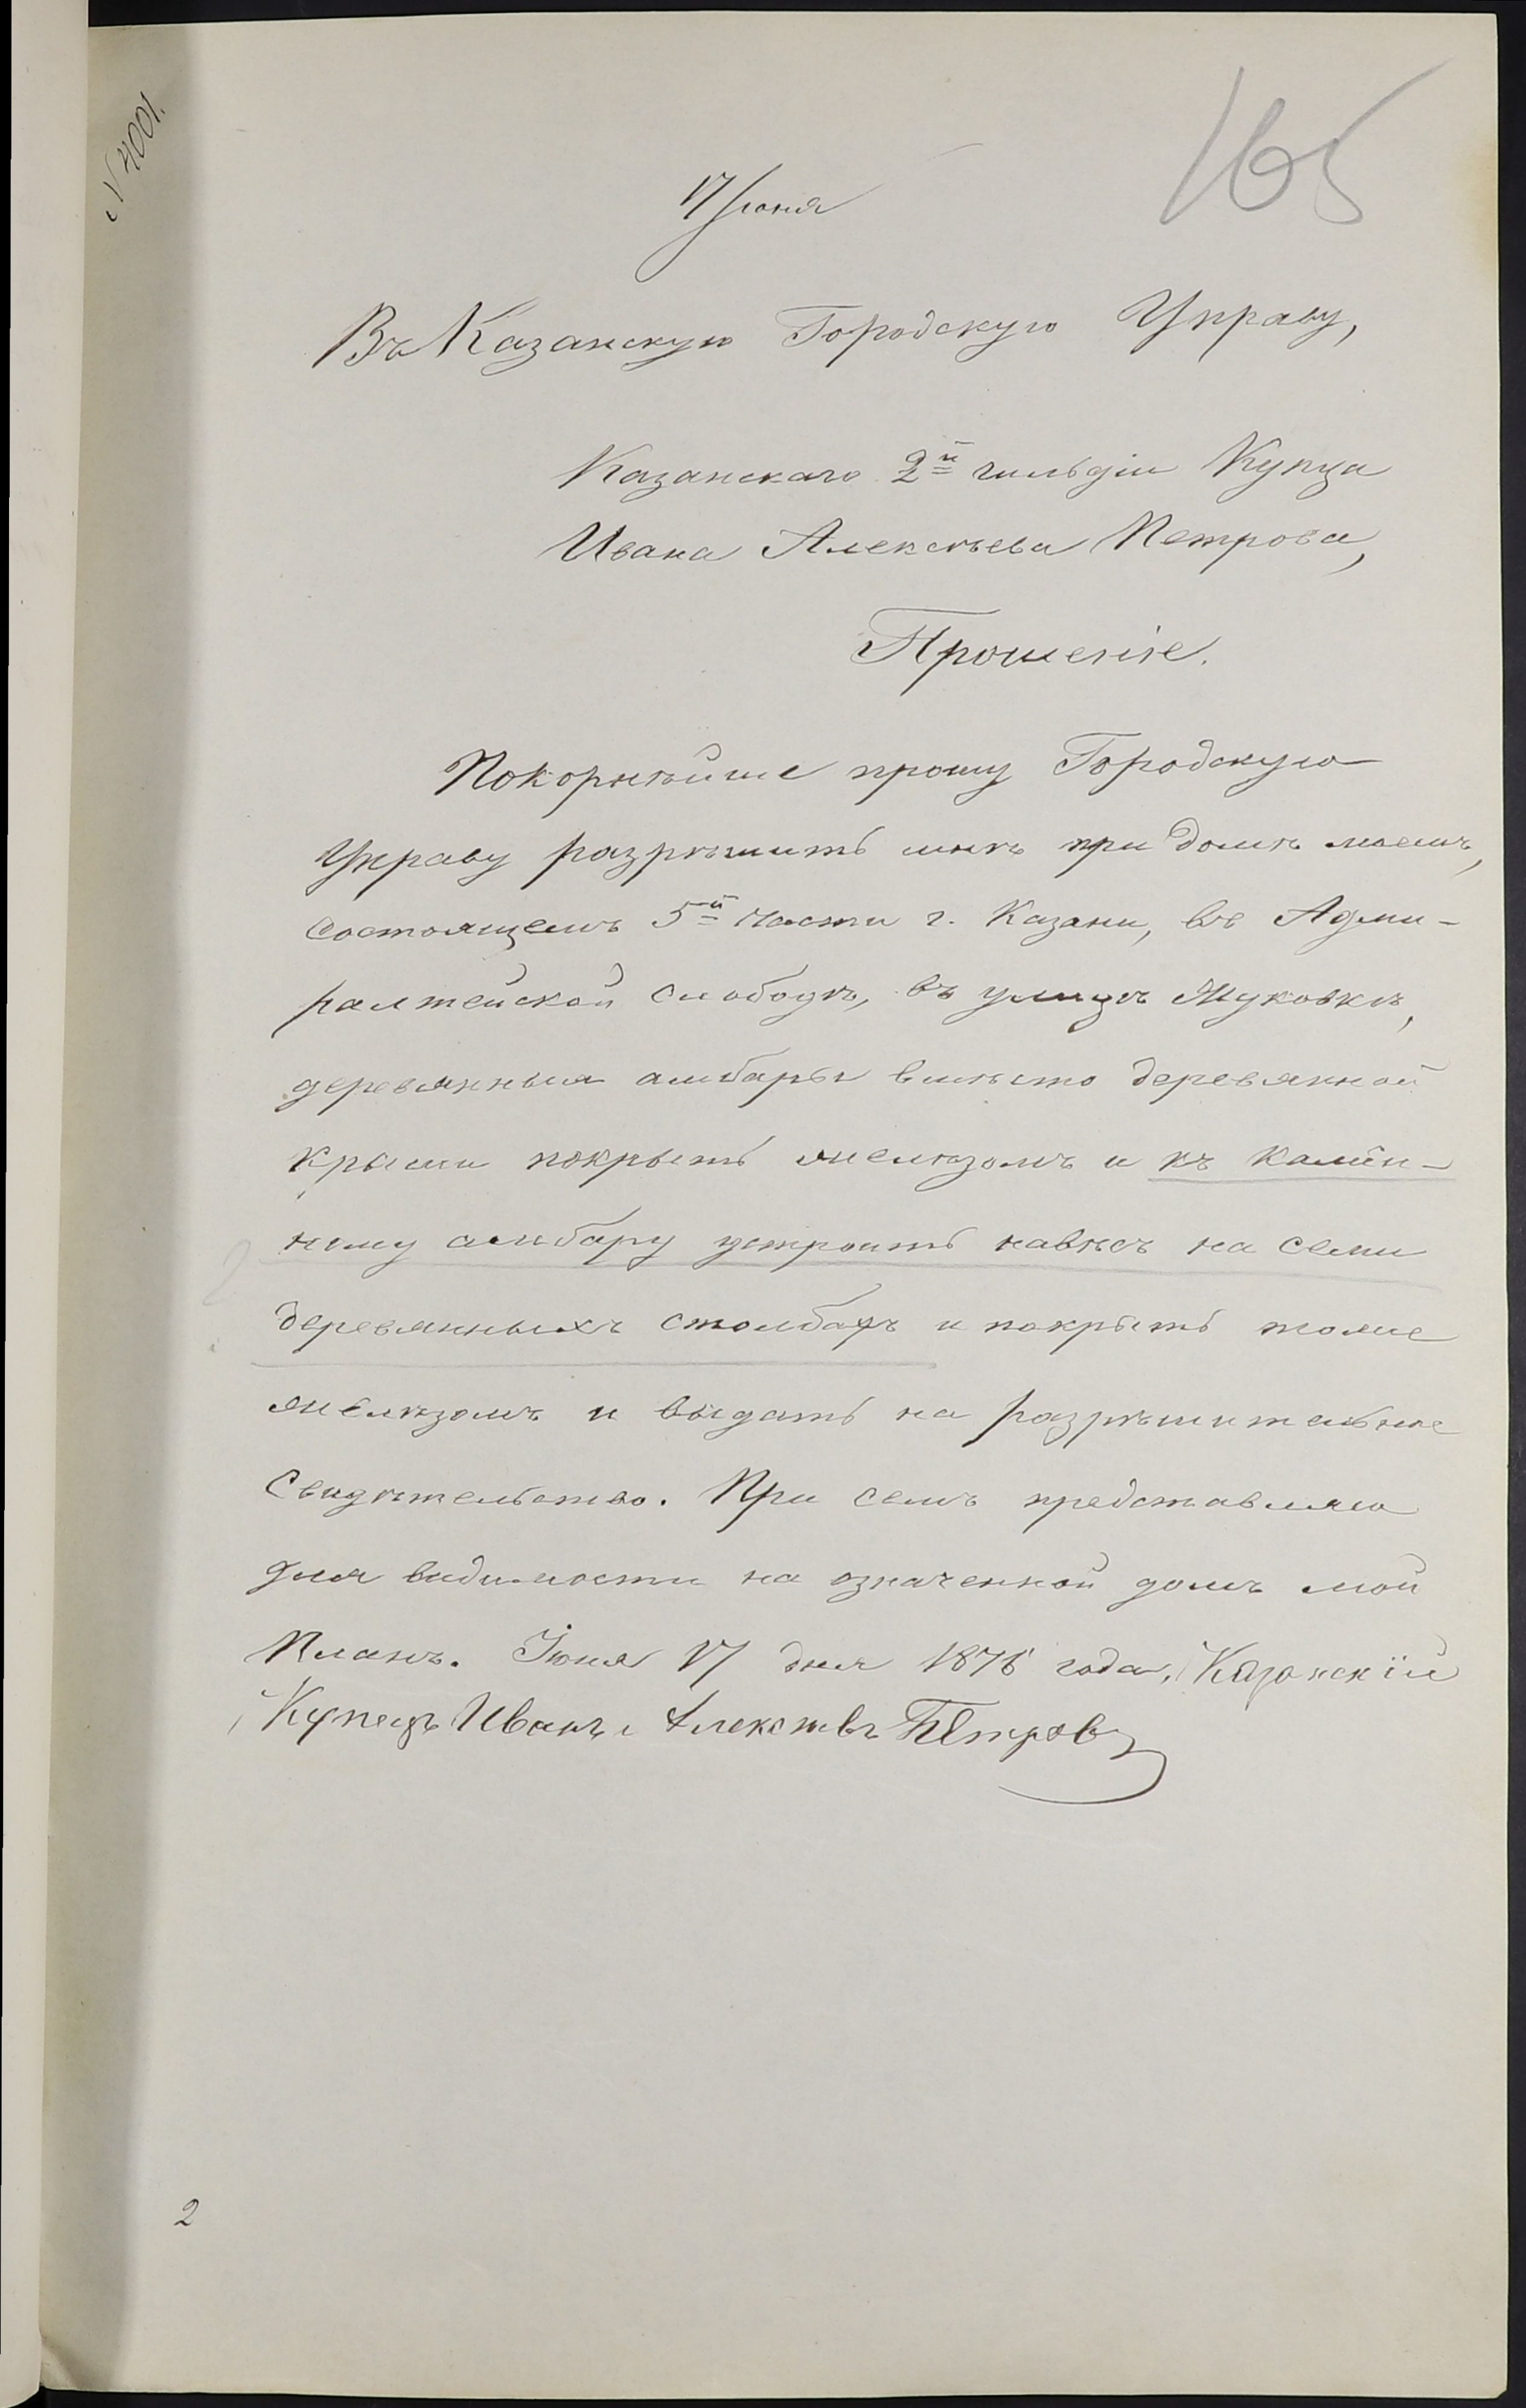 N 4001.
165
17 Іюня
Въ Казанскую Городскую Управу,
Казанскаго 2й гильдіи Купца
Ивана Алексѣева Петрова,
Прошеніе.
Покорнѣйше прошу Городскую
Управу разрѣшить мнѣ при домѣ моемъ,
состоящемъ 5й части г. Казани, въ Адми-
ралтейской слободѣ, въ улицѣ Жуковкѣ,
деревянныя амбары вмѣсто деревянной
крыши покрыть желѣзомъ и къ камен-
ному амбару устроить навѣсъ на семи
деревянныхъ столбахъ и покрыть тоже
желѣзомъ и выдать на разрѣшительное
свидѣтельство. При семъ представляю
для видимости на означенной домъ мой
Планъ. Іюня 17 дня 1876 года. Казанскій
Купецъ Иванъ Алексѣевъ Петровъ
2